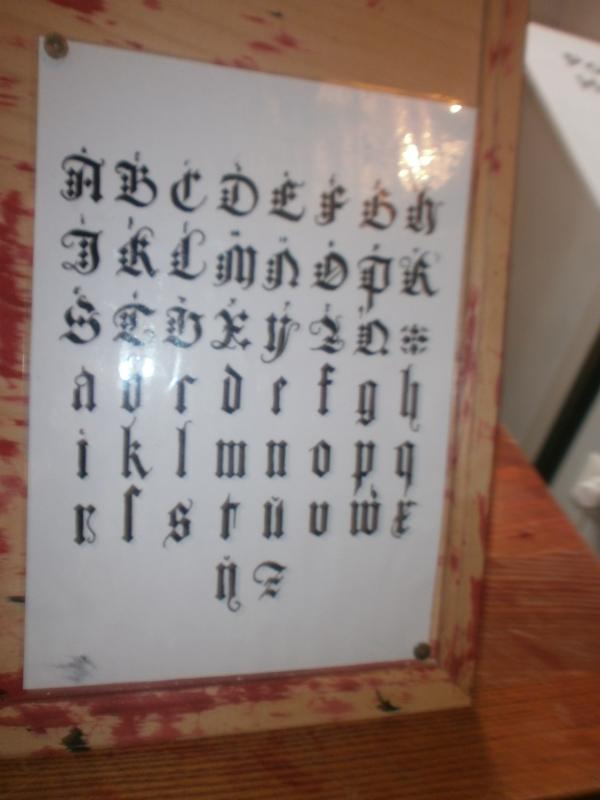 A B C D E F G H
I K L M N O P R
S T V X Y Z
a b c d e f g h
i k l m n o p q
r ſ s t ŭ v w x
ÿ z